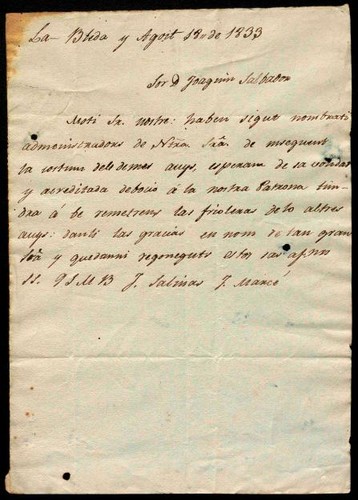 La Bleda y Agost 18 de 1833
Sor D Joaquin Salbador
Molt Sr. nostre: haben sigut nombrats
administradors de Ntra Sra de
la costum dels demes anys, esperam de sa bondat
y acreditada debocio á la nostra Patrona tin-
dra á be remetrens las frioleras dels altres
anys: danli las gracias en nom de tan gran
Sra y quedanni regoneguts
J. Salinas J. Marcé